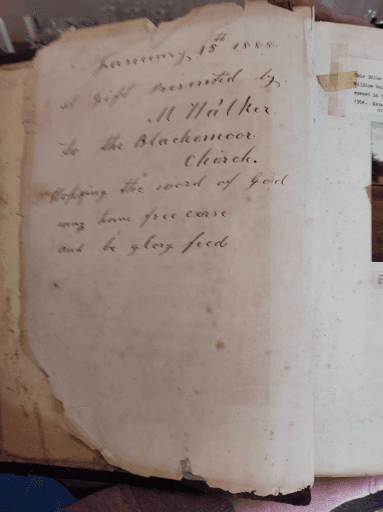 January, 15th 1888.
A Gift Presented by
M Walker.
To the Blackamoor.
Chorch.
the word of God
may have free corse
and be glory fied
This Bible
William